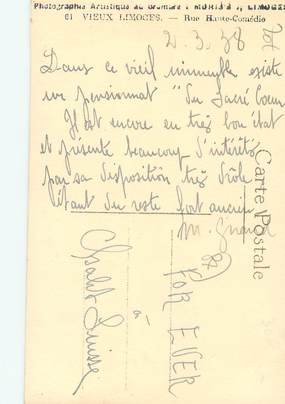 Photographie Artistique
61 VIEUX LIMOGES. — Rue Haute-Comédie
2.3.38
Dans ce vieil immeuble existe
un pensionnat "Du Sacré Cœur
Il est encore en très bon état
et présente beaucoup d'intérêts
par sa disposition très drôle
étant du reste fort ancien
M.
Carte Postale
FOR EVER
à
Chalet Suisse